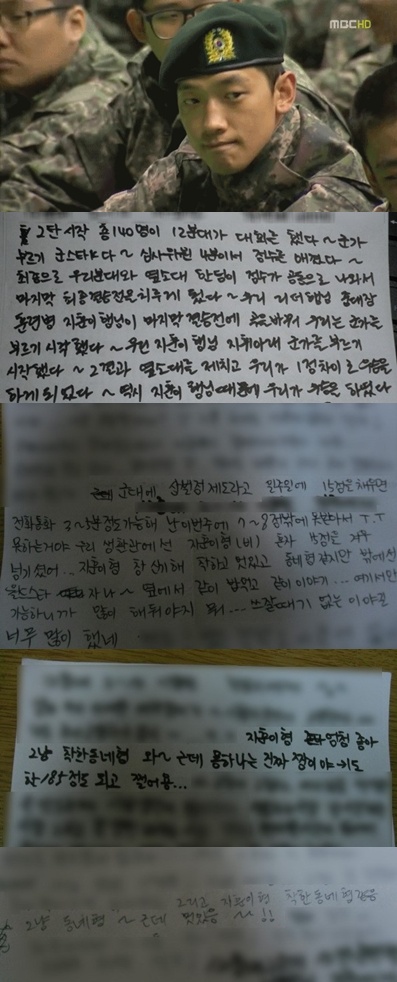 MBC HD
2탄 시작 총 140명이 12분대가 대회를 했다~군가
부르기 군스타K다~ 심사위원 4분이서 점수를 매겼다~
최종으로 우리분대와 옆소대 한팀이 점수가 공동으로 나와서
마지막 최종결승전을 치루게 됐다~ 우리 리더 행님 중대장
훈련병 지훈이 행님이 마지막 결승전에 우리는 군가를
부르기 시작했다~ 우린 지훈이 행님 지휘아래 군가를 부르기
시작했다~ 그결과 옆소대를 제치고 우리가 1점차이로 우승을
하게 되었다~ 역시 지훈이 행님때문에 우리가 우승을 하였다
군대에 상벌점제도라고 일주일에 15점을 채우면
전화통화 3~5분정도가능해 난 이번주에 7~8점밖에 못받아서 T.T
못하는거야 우리 생활관에선 지훈이형(비) 혼자 15점을 겨우
넘기셨어... 지훈이형 참 신기해 착하고 멋있고 동네형 같지만 밖에선
월드스타 자나~ 옆에서 같이 밥먹고 같이 이야기... 여기서만
가능하니까 많이 해둬야지 뭐... 쓰잘때기 없는 이야길
너무 많이 했네
지훈이형 엄청 좋아
그냥 착한동네형 와~ 근데 몸하나는 진짜 짱이야 키도
한 185정도 되고 쩔어용...
그리고 지훈이형 착한동네형같음
그냥 동네형~ 근데 멋있음 ~~!!